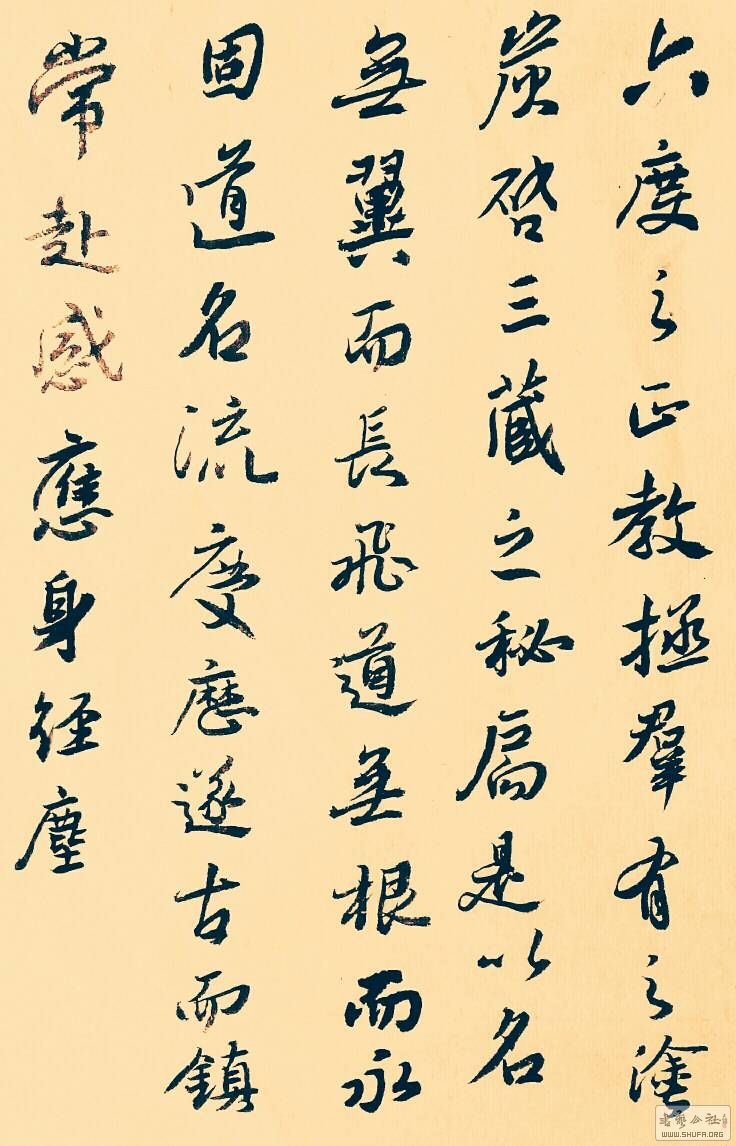 六度之正教拯羣有之塗
炭啓三藏之秘扃是以名
無翼而長飛道無根而永
固道名流慶歷遂古而鎮
常赴感應身經塵
WWW.SHUFA.ORG